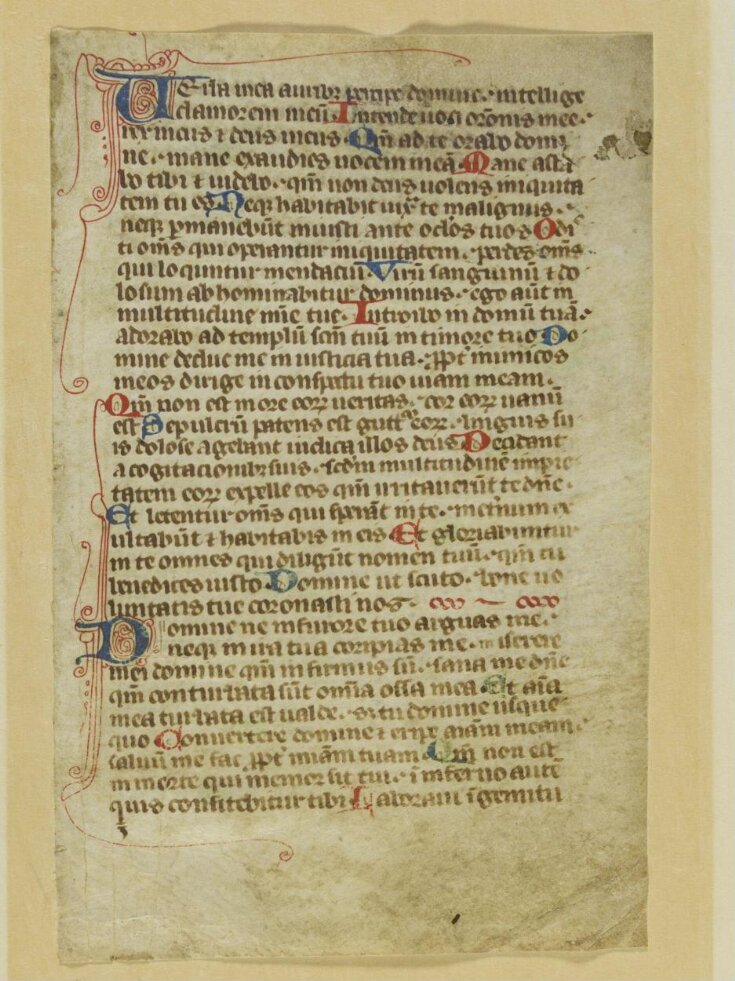 Verba mea auribꝫ percipe domine · intellige
clamorem meū Intende uoci orōnis mee
rex meus ⁊ deus meus Qm̄ ad te orabo domi
ne · mane exaudies uocem meā Mane asta
bo tibi ⁊ uidebo · qm̄ non deus uolens iniquita
tem tu es Neqꝫ habitabit iux̄ te malignus ·
neqꝫ ꝑmanebūt iniusti ante oc̄los tuos Odi
sti om̄s qui operantur iniquitatem · perdes om̄s
qui loquntur mendaciū Virū sanguinū ⁊ do
losum abhominabitur dominus · ego aūt in
multitudine mīe tue · Introibo in domū tuā ·
adorabo ad templū scm̄ tuū in timore tuo Do
mine deduc me in iusticia tua · ꝓpt̄ inimicos
meos dirige in conspectu tuo uiam meam ·
Qm̄ non est in ore eoꝝ ueritas · cor eoꝝ uanū
est Sepulcrū patens est gutt᷑ eoꝝ · linguis su
is dolose agebant iudica illos deus Decidant
a cogitacionibꝫ suis · scd̄m multitudinē impie
tatem eoꝝ expelle eos qm̄ irritauerūt te dn̄e ·
Et letentur om̄s qui sperāt in te · in eternum ex
ultabūt ⁊ habitabis in eis Et gloriabuntur
in te omnes qui diligūt nomen tuū · qm̄ tu
benedices iusto Domine ut scuto · bone uo
luntatis tue coronasti nos ·
Domine ne in furore tuo arguas me ·
neqꝫ in ira tua corripias me · miserere
mei domine qm̄ infirmus sū · sana me dn̄e
qm̄ conturbata sūt om̄ia ossa mea Et aīa
mea turbata est ualde · si tu domine usque
quo Conuertere domine ⁊ eripe aīam meam ·
saluū me fac ꝓpt̄ mīam tuam Qm̄ non est
in morte qui memor sit tui · ī inferno autē
quis confitebitur tibi Laboraui ī gemitu